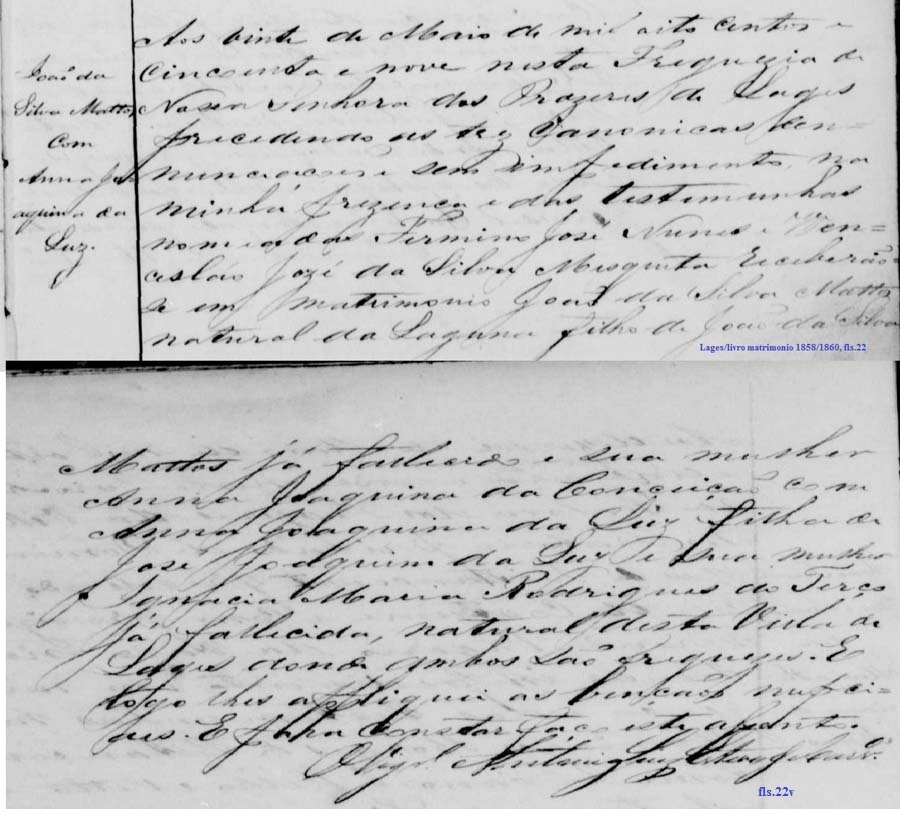 João da
Silva Mattos
Com
Anna Jo-
aquina da
Luz.
Aos vinte de Maio de mil oito centos e
cincoenta e nove nesta Freguezia de
Nossa Senhora dos Prazeres de Lages
precedendo as trez Canonicas den=
nunciacoes e sem impedimento, na
minha prezença e das testimunhas
nomeadas Firmino José Nunes e Wen=
cesláo Jozé da Silva Mesquita Receberão
se em matrimonio João da Silva Mattos
natural da Laguna filho de João da Silva
Lages/livro matrimonio 1858/1860, fls.22
Mattos já fallecido e sua mulher
Anna Joaquina da Conceição com
Anna Joaquina da Luz filha de
José Joaquim da Luz e sua mulher
Ignacia Maria Rodrigues do Terço
já fallecida, natural desta Villa de
Lages donde ambos são freguezes. E
logo lhes appliquei as bençãos nupci=
aes. E para constar faço este assento.
O Vigr.º Antonio
fls.22v